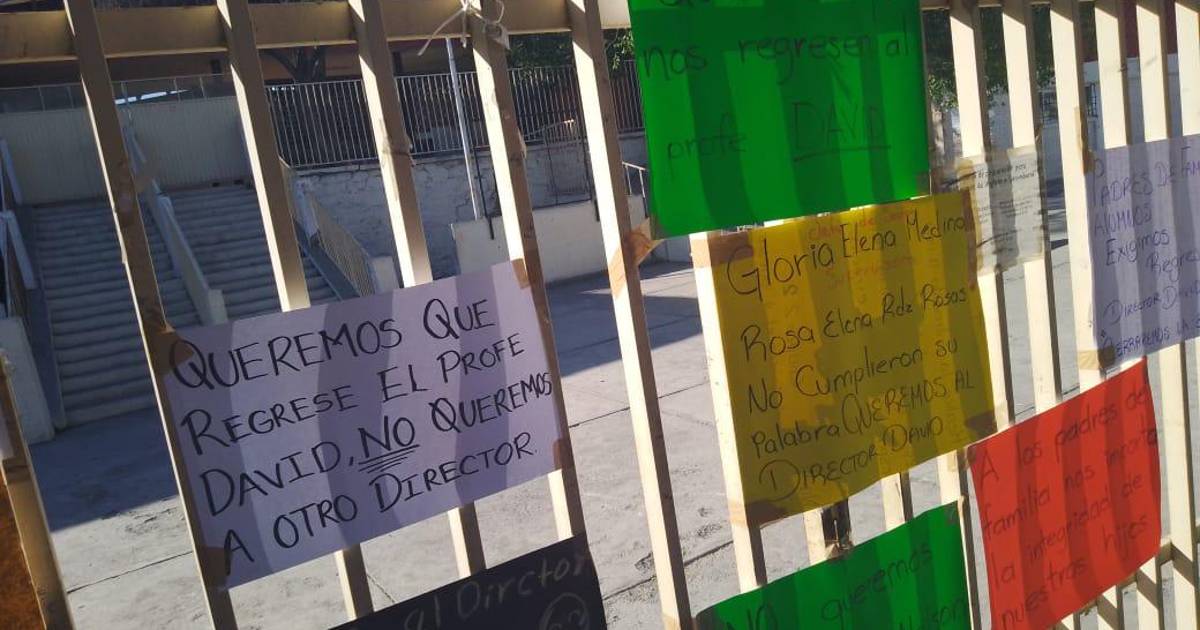 nos regresen al
profe DAVID
QUEREMOS QUE
REGRESE EL PROFE
DAVID, NO QUEREMOS
A OTRO DIRECTOR.
Gloria Elena Medina
Rosa Elena Rdz Rosas
No Cumplieron su
Palabra QUEREMOS AL
DIRECTOR: DAVID
PADRES DE
ALUMNOS
EXIGIMOS
Regre
DIRECTOR DAVID
CERRAREMOS LA
A los padres de
familia nos importa
la integridad de
nuestros hijos
al Dirctor
No queremos